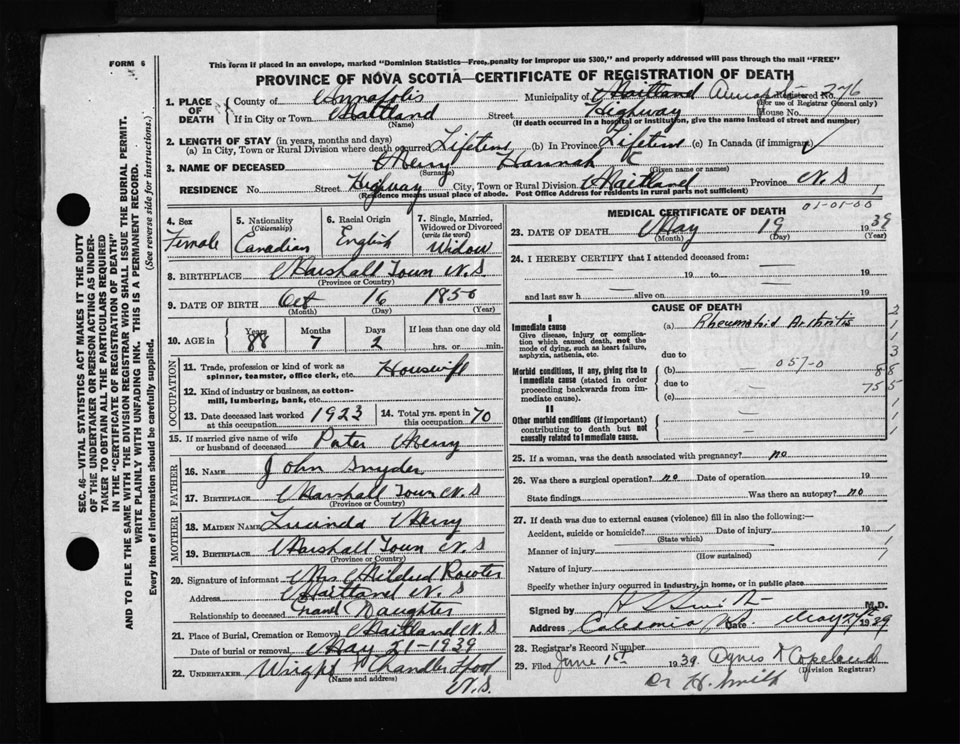 FORM 6
This form if placed in an envelope, marked "Dominion Statistics—Free, penalty for improper use $300," and properly addressed will pass through the mail "FREE"
PROVINCE OF NOVA SCOTIA—CERTIFICATE OF REGISTRATION OF DEATH
1. PLACE OF DEATH { County of Annapolis Municipality of Maitland Annapolis Registered No. 276
(For use of Registrar General only)
If in City or Town Maitland Street Highway House No.
(Name) (If death occurred in a hospital or institution, give the name instead of street and number)
2. LENGTH OF STAY (in years, months and days)
(a) In City, Town or Rural Division where death occurred Lifetime (b) In Province Lifetime (c) In Canada (if immigrant)
3. NAME OF DECEASED Merry Hannah C
(Surname) (Given name or names)
RESIDENCE No. Street Highway City, Town or Rural Division Maitland Province N.S
(Residence means usual place of abode. Post Office Address for residents in rural parts not sufficient)
4. Sex 5. Nationality (Citizenship) 6. Racial Origin 7. Single, Married, Widowed or Divorced (write the word)
Female Canadian English Widow
8. BIRTHPLACE Marshall Town N.S
(Province or Country)
9. DATE OF BIRTH Oct 16 1850
(Month) (Day) (Year)
10. AGE in Years Months Days If less than one day old
88 7 2 hrs. or min.
OCCUPATION
11. Trade, profession or kind of work as spinner, teamster, office clerk, etc. Housewife
12. Kind of industry or business, as cotton-mill, lumbering, bank, etc.
13. Date deceased last worked at this occupation 1923 14. Total yrs. spent in this occupation 70
15. If married give name of wife or husband of deceased Peter Merry
FATHER
16. NAME John Snyder
17. BIRTHPLACE Marshall Town N.S
(Province or Country)
MOTHER
18. MAIDEN NAME Lucinda Merry
19. BIRTHPLACE Marshall Town N.S
(Province or Country)
20. Signature of informant Mrs Mildred
Address Maitland N.S
Relationship to deceased Grand Daughter
21. Place of Burial, Cremation or Removal Maitland N.S
Date of burial or removal May 21-1939
22. UNDERTAKER Wright Chandler
(Name and address) N.S.
MEDICAL CERTIFICATE OF DEATH 01-01-00
23. DATE OF DEATH May 19 1939
(Month) (Day) (Year)
24. I HEREBY CERTIFY that I attended deceased from:
19 to 19
and last saw h alive on 19
CAUSE OF DEATH
I
Immediate cause (a) Rheumatoid Arthritis
Give disease, injury or complication which caused death, not the mode of dying, such as heart failure, asphyxia, asthenia, etc.
due to
Morbid conditions, if any, giving rise to immediate cause (stated in order proceeding backwards from immediate cause). (b) 057-0
due to
(c)
II
Other morbid conditions (if important) contributing to death but not causally related to immediate cause.
25. If a woman, was the death associated with pregnancy? no
26. Was there a surgical operation? no Date of operation 19
State findings Was there an autopsy? no
27. If death was due to external causes (violence) fill in also the following:—
Accident, suicide or homicide? Date of injury 19
(State which)
Manner of injury
(How sustained)
Nature of injury
Specify whether injury occurred in industry, in home, or in public place
Signed by H S Smith M.D.
Address Caledonia Date May 1939
28. Registrar's Record Number
29. Filed June 1st 1939 Agnes Copeland
(Division Registrar)
Dr H. Smith
SEC. 46—VITAL STATISTICS ACT MAKES IT THE DUTY OF THE UNDERTAKER OR PERSON ACTING AS UNDERTAKER TO OBTAIN ALL THE PARTICULARS REQUIRED IN THE "CERTIFICATE OF REGISTRATION OF DEATH" AND TO FILE THE SAME WITH THE DIVISION REGISTRAR WHO SHALL ISSUE THE BURIAL PERMIT.
WRITE PLAINLY WITH UNFADING INK. THIS IS A PERMANENT RECORD.
Every item of information should be carefully supplied. (See reverse side for instructions.)